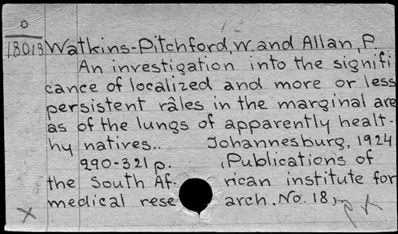 O
18018 Watkins-Pitchford, W. and Allan, P.
An investigation into the signifi
cance of localized and more or less
persistent râles in the marginal are
as of the lungs of apparently healt-
hy natives.. Johannesburg, 1924
290-321 p. (Publications of
the South Af- rican institute for
medical rese arch. No. 18,
x